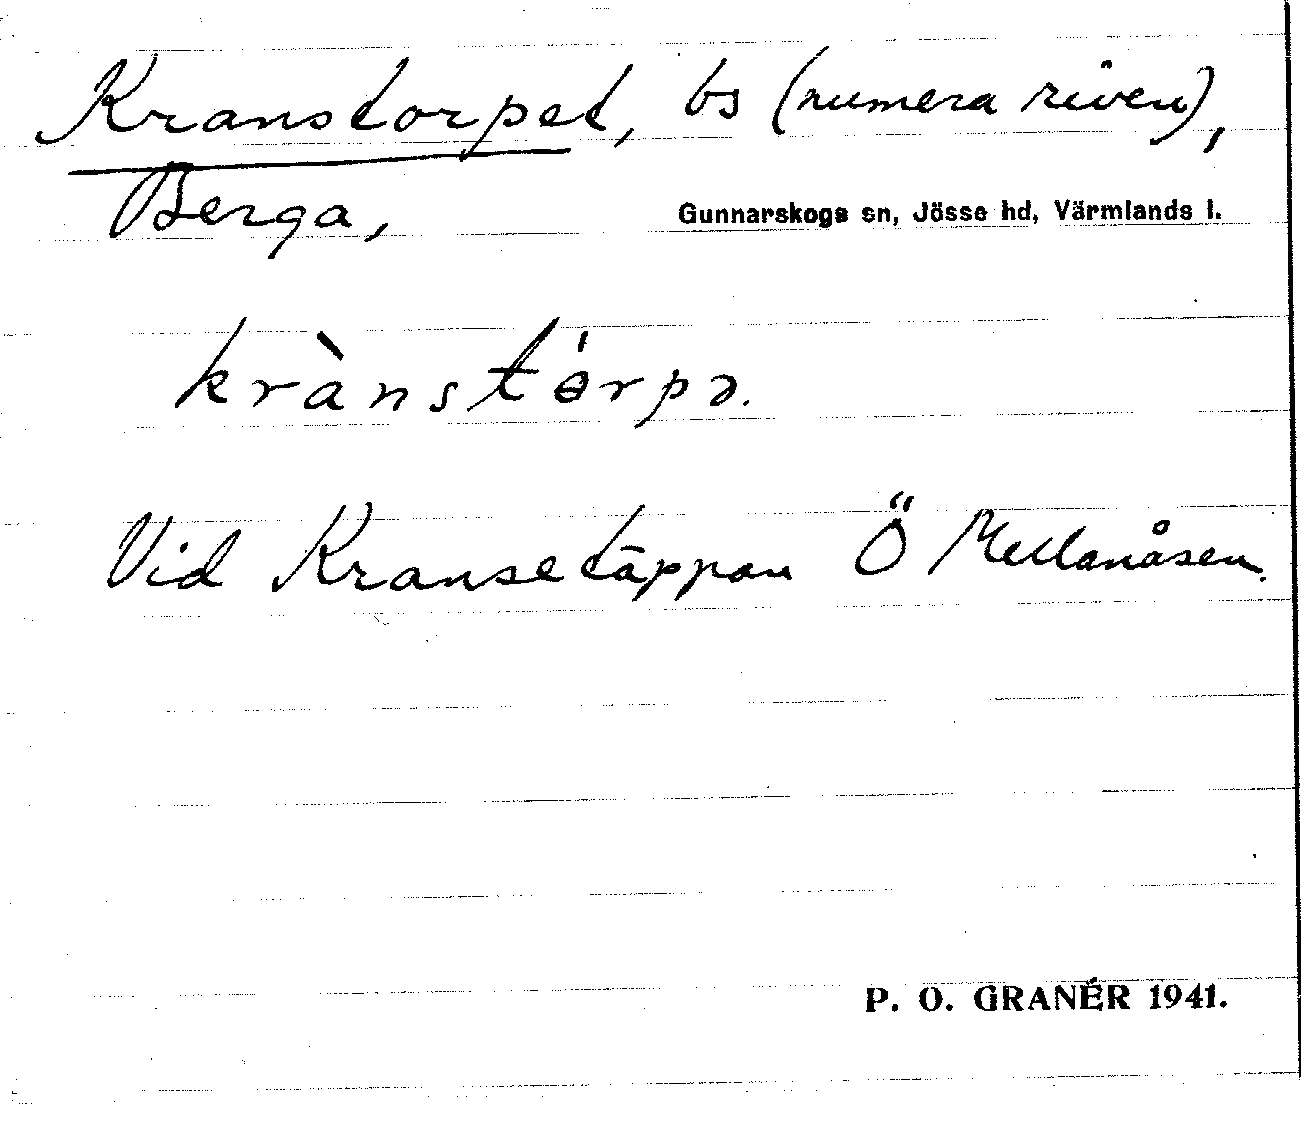 Kranstorpet, bs (numera riven),
Berga,
Gunnarskogs sn, Jösse hd, Värmlands l.
krànstɵ́rpə.
Vid Kransetäppan Ö Mellanåsen.
P. O. GRANÉR 1941.